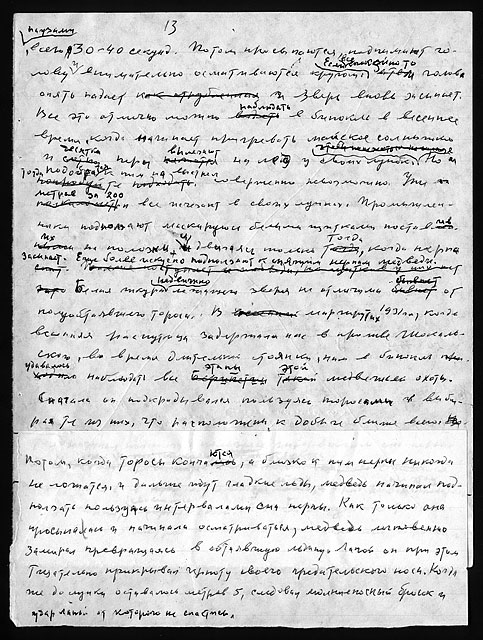 13
паузами
всего 30-40 секунд. Потом просыпаются, поднимают го-
лову и внимательно осматриваются кругом. Если все спокойно то голова
опять падает как отрубленная и зверь вновь засыпает.
Все это отлично можно наблюдать в бинокль в весеннее
время, когда начинает пригревать майское солнышко
и десятки нерп вылезают на лед у своих лунок. Но и
тогда подобраться к ним на выстрел совершенно невозможно. Уже
метров за 200 и все исчезают в своих лунках. Промышлен-
ники подползают маскируясь белыми щитками поставлен-
ных на полозья и двигаясь только тогда, когда нерпа
засыпает. Еще более искусно подползают к спящим нерпам медведи.
Белая шкура лежащего неподвижно зверя не отличима бывает от
полуобтаявшего тороса. В маршрутах 1931 г., когда
весенняя распутица задержала нас в проливе Шокаль-
ского, во время длительной стоянки, нам в бинокль
удавалось наблюдать все этапы этой медвежьей охоты.
Сначала он подкрадывался пользуясь торосами и выби-
рая те из них, что расположены к добыче ближе всего.
Потом, когда торосы кончаются, а близко к ним нерпы никогда
не ложатся, и дальше идут гладкие льды, медведь начинал под-
ползать пользуясь интервалами сна нерпы. Как только она
просыпалась и начинала осматриваться, медведь мгновенно
замирал превращаясь в обтаявшую льдину. Лапой он при этом
тщательно прикрывал черноту своего предательского носа. Когда
же до лунки оставалось метров 5, следовал молниеносный бросок и
удар лапой от которого не спастись.